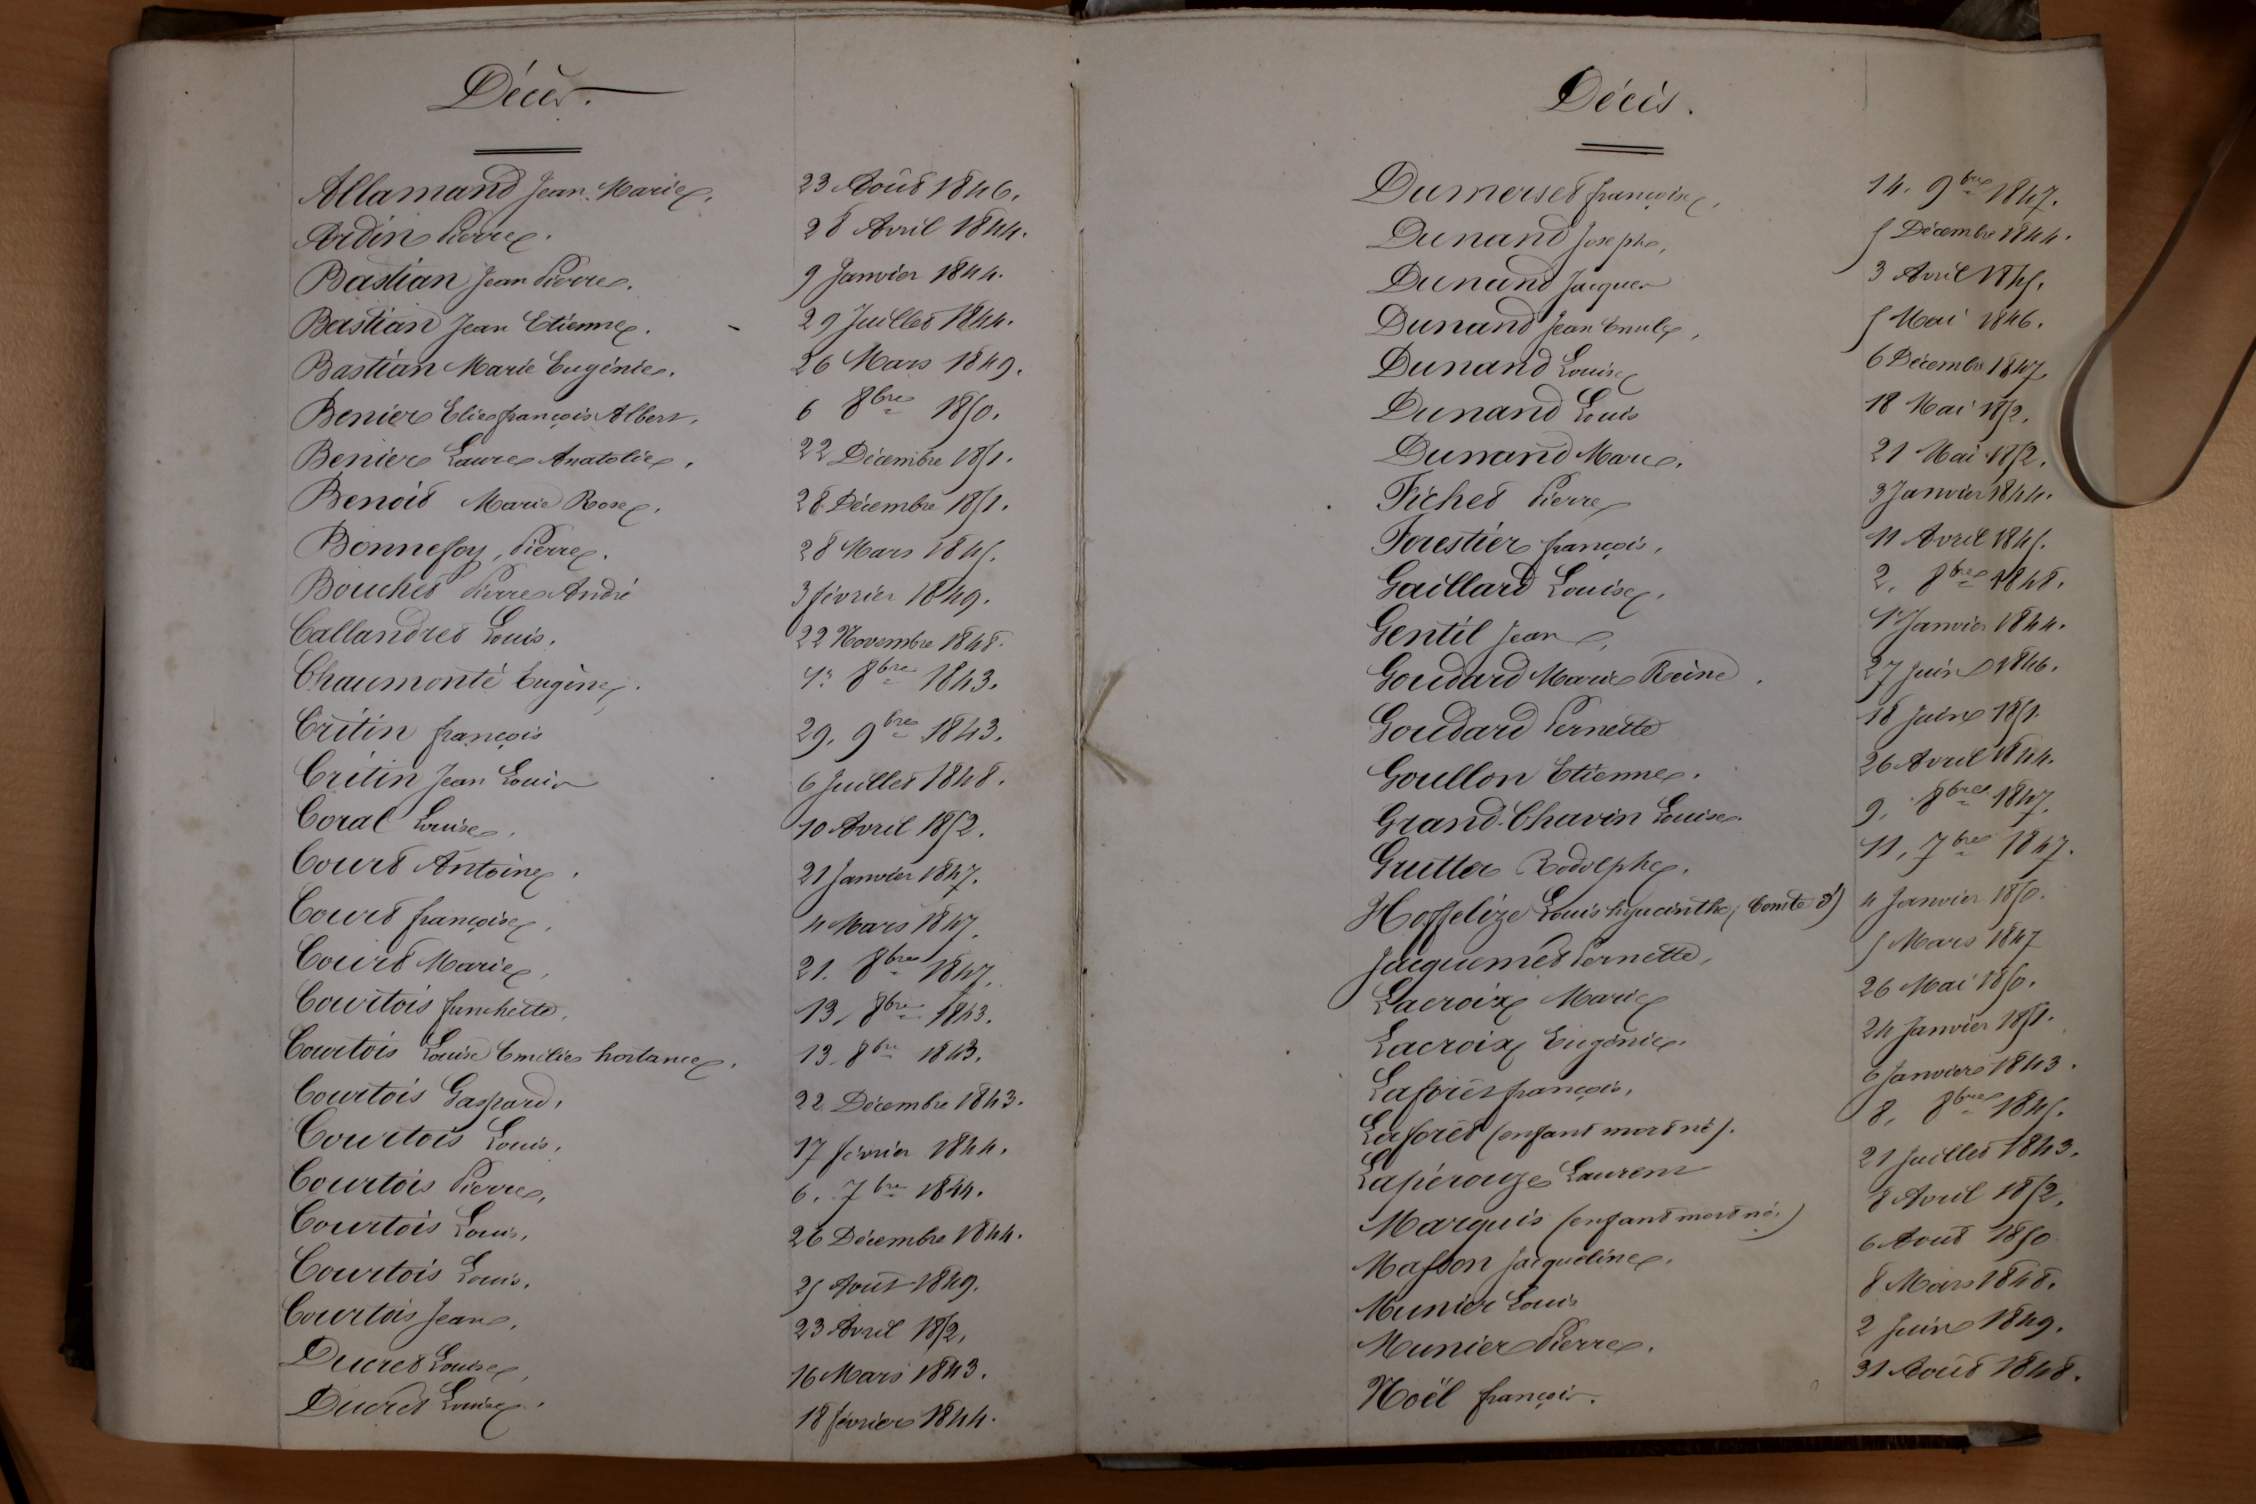 Décès.
Allamand Jean-Marie. 23 Août 1846.
Ardin Pierre. 28 Avril 1844.
Bastian Jean Pierre. 9 Janvier 1844.
Bastian Jean Etienne. - 29 Juillet 1844.
Bastian Marie Eugénie. 26 Mars 1849.
Benier Elie françois Albert. 6 8bre 1850.
Benier Laure Anatolie. 22 Décembre 1851.
Benoit Marie Rose. 28 Décembre 1851.
Bonnefoy, Pierre. 28 Mars 1845.
Bouchet Pierre André 3 février 1849.
Callandret Louis. 22 Novembre 1848.
Chaumonté Eugène. 1er 8bre 1843.
Crétin françois 29, 9bre 1843.
Crétin Jean Louis 6 Juillet 1848.
Coral Louise. 10 Avril 1852.
Court Antoine. 21 Janvier 1847.
Court françoise. 4 Mars 1847.
Court Marie. 21. 8bre 1847.
Courtois fanchette. 13, 8bre 1843.
Courtois Louise Emilie hortance. 13. 8bre 1843.
Courtois Gaspard. 22 Décembre 1843.
Courtois Louis. 17 février 1844.
Courtois Pierre. 6. 7bre 1844.
Courtois Louis. 26 Décembre 1844.
Courtois Louis. 25 Août 1849.
Courtois Jean. 23 Avril 1852.
Ducret Louise. 16 Mars 1843.
Ducret Louise. 18 février 1844.
Décès.
Dumerset françoise. 14. 9bre 1847.
Dunand Joseph. 5 Décembre 1844.
Dunand Jacques 3 Avril 1845.
Dunand Jean Emile. 5 Mai 1846.
Dunand Louise 6 Décembre 1847.
Dunand Louis 18 Mai 1852.
Dunand Marie. 21 Mai 1852.
Fichet Pierre 3 Janvier 1844.
Forestier françois. 11 Avril 1845.
Gaillard Louise. 2, 8bre 1848.
Gentil Jean. 1er Janvier 1844.
Goudard Marie Reine. 27 Juin 1846.
Goudard Pernette 18 Juin 1851.
Goullon Etienne. 26 Avril 1844.
Grand-Chavin Louise. 9, 8bre 1847.
Grutter Rodolphe. 11, 7bre 1847.
Hoffelize Louis hyacinthe, Comte d') 4 Janvier 1850.
Jacquemet Pernette, 5 Mars 1847
Lacroix Marie 26 Mai 1850.
Lacroix Eugénie. 24 Janvier 1851.
Laforêt françois. 6 Janvier 1843.
Laforêt (enfant mort né). 8, 8bre 1845.
Lapérouze Laurent 21 Juillet 1843.
Marquis (enfant mort né.) 8 Avril 1852.
Masson Jacqueline. 6 Août 1850
Munier Louis 8 Mars 1848.
Munier Pierre. 2 Juin 1849.
Noël françois. 31 Août 1848.